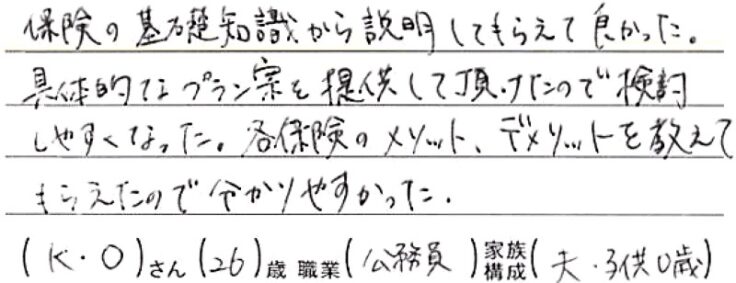 保険の基礎知識から説明してもらえて良かった。
具体的なプラン案を提供して頂けたので検討
しやすくなった。各保険のメリット、デメリットを教えて
もらえたので分かりやすかった.
(K・O)さん(26)歳 職業(公務員)家族構成(夫・子供0歳)